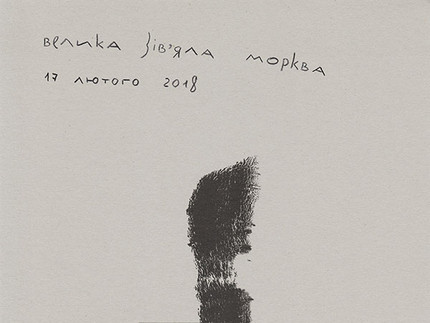 велика зів'яла морква
17 лютого 2018